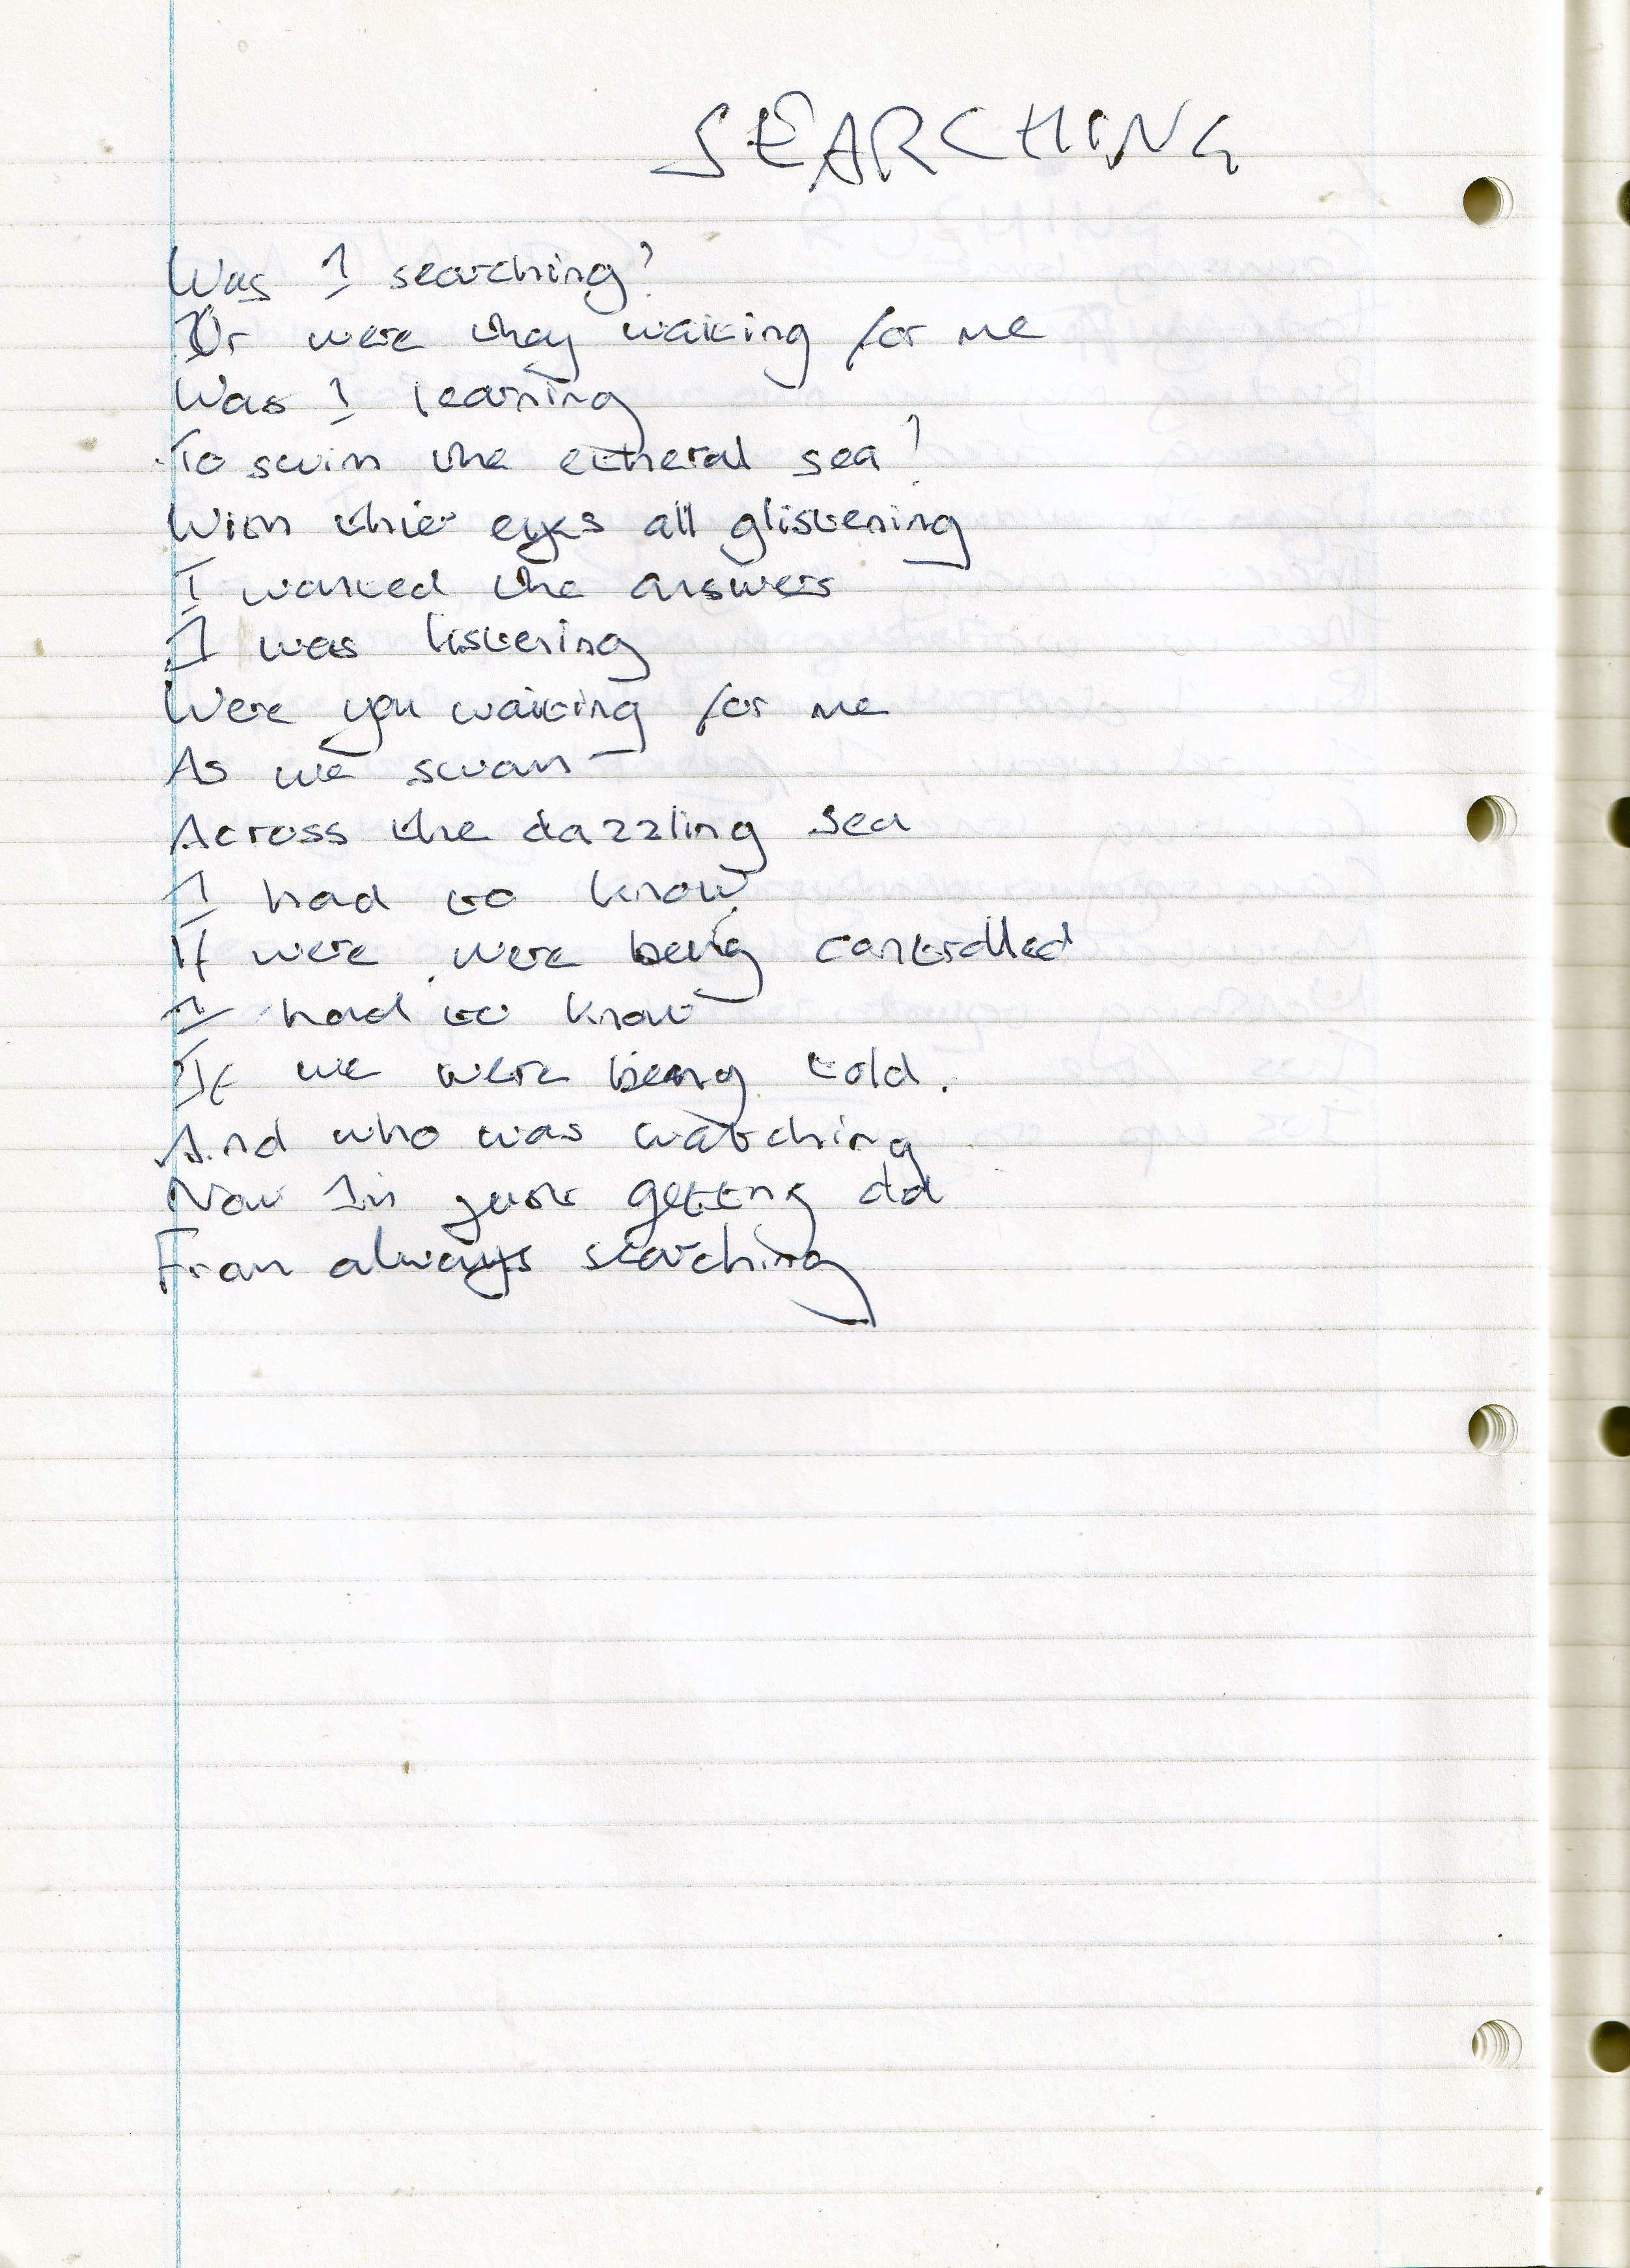 SEARCHING
Was I searching?
Or were they waiting for me
Was I learning
To swim the etheral sea?
With thier eyes all glistening
I wanted the answers
I was listening
Were you waiting for me
As we swam
Across the dazzling sea
I had to know
If were were being controlled
I had to know
If we were being told.
And who was watching
Now Im just getting old
From always searching